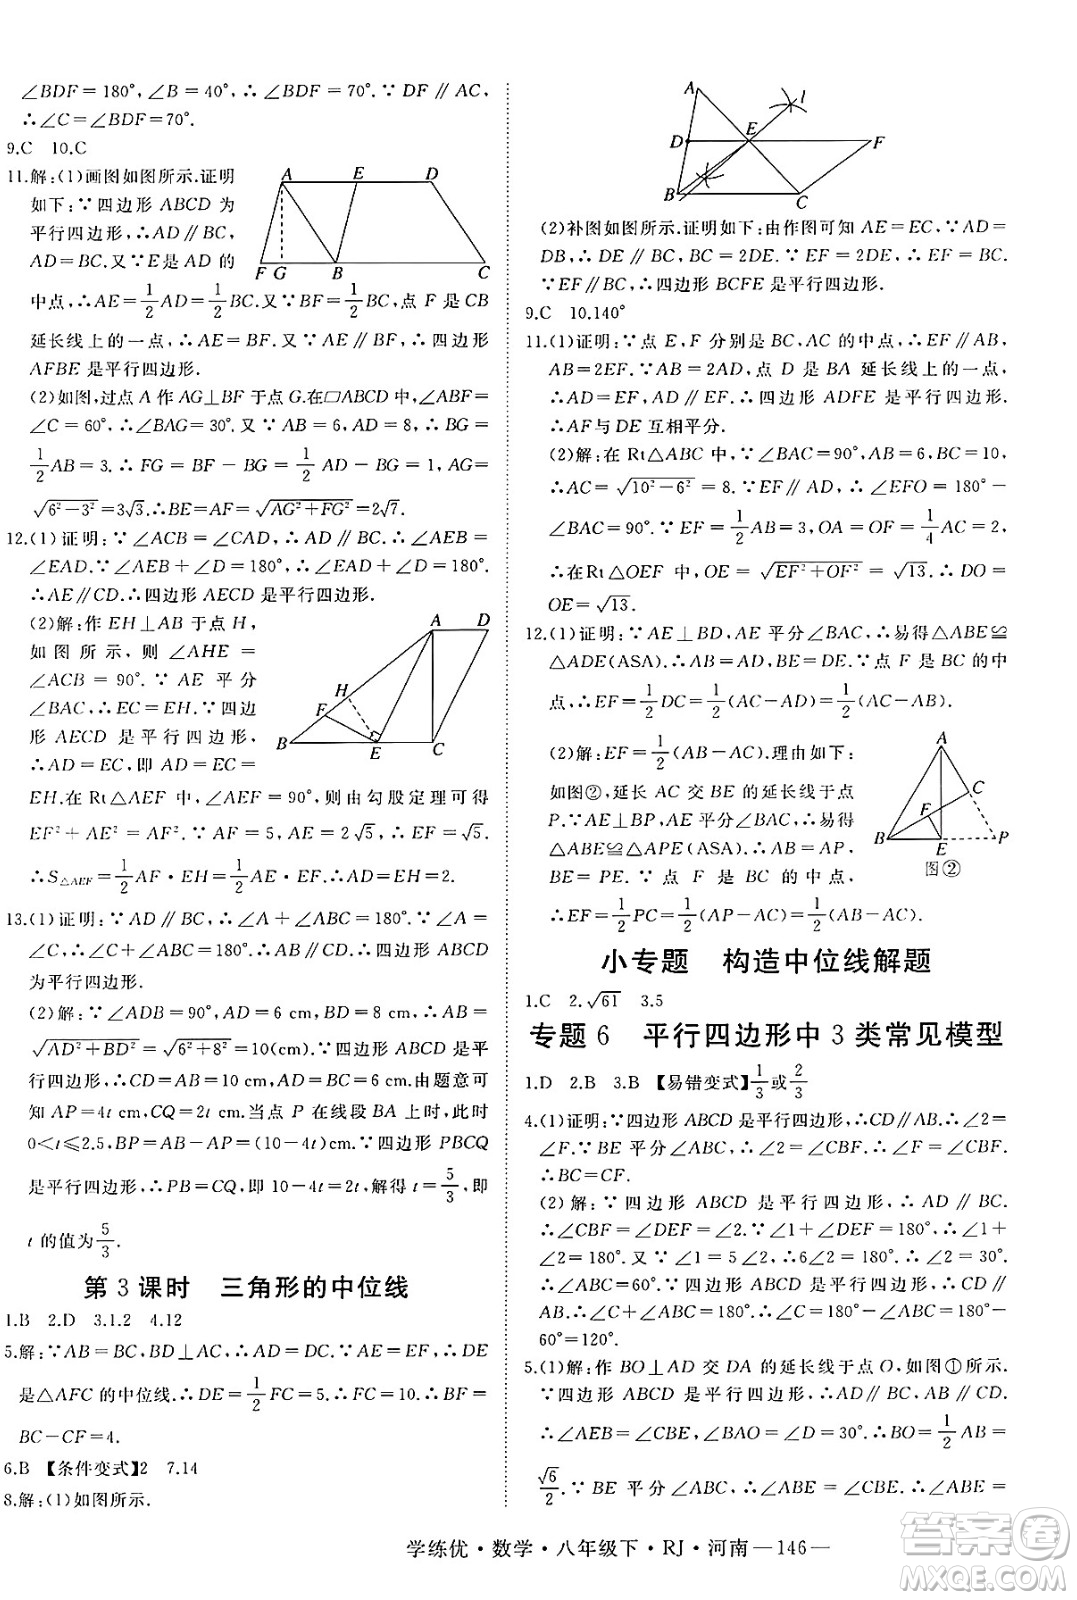 ∠BDF=180°,∠B=40°,∴∠BDF=70°.∵DF∥AC,
∴∠C=∠BDF=70°.
9.C 10.C
11.解:(1)画图如图所示.证明
如下:∵四边形 ABCD 为
平行四边形,∴AD∥BC,
AD=BC.又∵E是AD的
中点,∴AE=1/2AD=1/2BC.又∵BF=1/2BC,点 F 是 CB
延长线上的一点,∴AE=BF.又∵AE∥BF,∴四边形
AFBE 是平行四边形.
A E D
F G B C
(2)如图,过点 A 作 AG⊥BF 于点 G.在▱ABCD 中,∠ABF=
∠C=60°,∴∠BAG=30°.又∵AB=6,AD=8,∴BG=
1/2AB=3.∴FG=BF-BG=1/2AD-BG=1,AG=
√(6²-3²)=3√3.∴BE=AF=√(AG²+FG²)=2√7.
12.(1)证明:∵∠ACB=∠CAD,∴AD∥BC.∴∠AEB=
∠EAD.∵∠AEB+∠D=180°,∴∠EAD+∠D=180°.
∴AE∥CD.∴四边形 AECD 是平行四边形.
(2)解:作 EH⊥AB 于点 H,
如图所示,则∠AHE=
∠ACB=90°.∵AE 平分
∠BAC,∴EC=EH.∵四边
形 AECD 是平行四边形,
∴AD=EC,即 AD=EC=
A D
H
F
B E C
EH.在 Rt△AEF 中,∠AEF=90°,则由勾股定理可得
EF²+AE²=AF².∵AF=5,AE=2√5,∴EF=√5.
∴S△AEF=1/2AF·EH=1/2AE·EF.∴AD=EH=2.
13.(1)证明:∵AD∥BC,∴∠A+∠ABC=180°.∵∠A=
∠C,∴∠C+∠ABC=180°.∴AB∥CD.∴四边形 ABCD
为平行四边形.
(2)解:∵∠ADB=90°,AD=6 cm,BD=8 cm,∴AB=
√(AD²+BD²)=√(6²+8²)=10(cm).∵四边形 ABCD 是平
行四边形,∴CD=AB=10 cm,AB∥CD.由题意可
知 AP=4t cm,CQ=2t cm.当点 P 在线段 BA 上时,此时
0<t≤2.5,BP=AB-AP=(10-4t)cm.∵四边形 PBCQ
是平行四边形,∴PB=CQ,即 10-4t=2t,解得 t=5/3,即
t 的值为5/3.
第 3 课时 三角形的中位线
1.B 2.D 3.1.2 4.12
5.解:∵AB=BC,BD⊥AC,∴AD=DC.∵AE=EF,∴DE
是△AFC 的中位线.∴DE=1/2FC=5.∴FC=10.∴BF=
BC-CF=4.
6.B 【条件变式】2 7.14
8.解:(1)如图所示.
A l
D E F
B C
(2)补图如图所示.证明如下:由作图可知 AE=EC,∵AD=
DB,∴DE∥BC,BC=2DE.∵EF=2DE,∴EF=BC.
∵EF∥BC,∴四边形 BCFE 是平行四边形.
9.C 10.140°
11.(1)证明:∵点 E,F 分别是 BC,AC 的中点,∴EF∥AB,
AB=2EF.∵AB=2AD,点 D 是 BA 延长线上的一点,
∴AD=EF,AD∥EF.∴四边形 ADFE 是平行四边形.
∴AF与DE互相平分.
(2)解:在 Rt△ABC 中,∵∠BAC=90°,AB=6,BC=10,
∴AC=√(10²-6²)=8.∵EF∥AD,∴∠EFO=180°-
∠BAC=90°.∵EF=1/2AB=3,OA=OF=1/4AC=2,
∴在Rt△OEF 中,OE=√(EF²+OF²)=√13.∴DO=
OE=√13.
12.(1)证明:∵AE⊥BD,AE 平分∠BAC,∴易得△ABE≌
△ADE(ASA).∴AB=AD,BE=DE.∵点 F 是 BC 的中
点,∴EF=1/2DC=1/2(AC-AD)=1/2(AC-AB).
(2)解:EF=1/2(AB-AC).理由如下:
如图②,延长 AC 交 BE 的延长线于点
P.∵AE⊥BP,AE平分∠BAC,∴易得
△ABE≌△APE(ASA).∴AB=AP,
BE=PE.∵点 F 是 BC 的中点,
∴EF=1/2PC=1/2(AP-AC)=1/2(AB-AC).
A
C
F
B E P
图②
小专题 构造中位线解题
1.C 2.√61 3.5
专题 6 平行四边形中 3 类常见模型
1.D 2.B 3.B 【易错变式】1/3或2/3
4.(1)证明:∵四边形 ABCD 是平行四边形,∴CD∥AB.∴∠2=
∠F.∵BE 平分∠ABC,∴∠1=∠2.∴∠1=∠F.
∴BC=CF.
(2)解:∵四边形 ABCD 是平行四边形,∴AD∥BC.
∴∠CBF=∠DEF=∠2.∵∠1+∠DEF=180°,∴∠1+
∠2=180°.又∵∠1=5∠2,∴6∠2=180°.∴∠2=30°.
∴∠ABC=60°.∵四边形 ABCD 是平行四边形,∴AB∥
CD.∴∠C+∠ABC=180°.∴∠C=180°-∠ABC=180°-
60°=120°.
5.(1)解:作 BO⊥AD 交 DA 的延长线于点 O,如图①所示.
∵四边形 ABCD 是平行四边形,∴AD∥BC,AB∥CD.
∴∠AEB=∠EBC,∠OAB=∠ABC=30°.∴BO=1/2AB=
√6/2.∵BE 平分∠ABC,∴∠ABE=∠EBC=1/2∠ABC=
学练优·数学·八年级下·RJ·河南—146—
答案圈
MXQE.COM